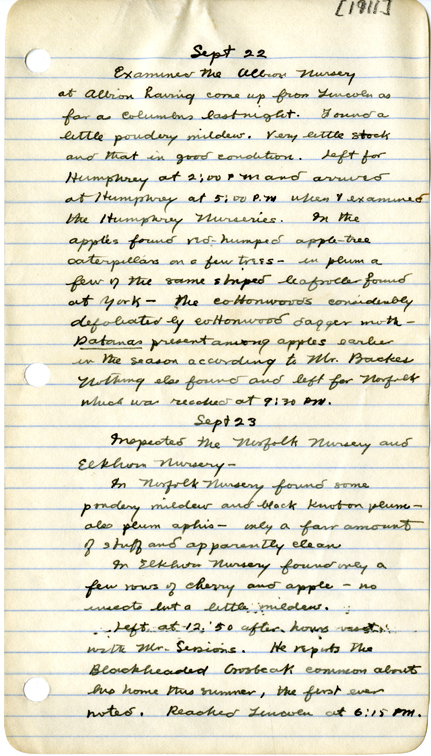 [1911]
Sept 22
Examined the Albion Nursery
at Albion having come up from Lincoln as
far as Columbus last night. Found a
little powdery mildew. Very little stock
and that in good condition. Left for
Humphrey at 2;00 P M and arrived
at Humphrey at 5;00 P.M when I examined
the Humphrey Nurseries. In the
apples found red-humped apple-tree
caterpillars on a few trees - in plum a
few of the same striped leafroller found
at York - the cottonwoods considerably
defoliated by cottonwood dagger moth -
Datanas present among apples earlier
in the season according to Mr. Backes
Nothing else found and left for Norfolk
which was reached at 9:30 PM.
Sept 23
Inspected the Norfolk Nursery and
Elkhorn Nursery -
In Norfolk Nursery found some
powdery mildew and black knot on plum -
also plum aphis - only a fair amount
of stuff and apparently clean
In Elkhorn Nursery found only a
few rows of cherry and apple - no
insects but a little mildew.
Left at 12;50 after hours
with Mr. Sessions. He reports the
Blackheaded Grosbeak common about
his home this summer, the first ever
noted. Reached Lincoln at 6:15 PM.